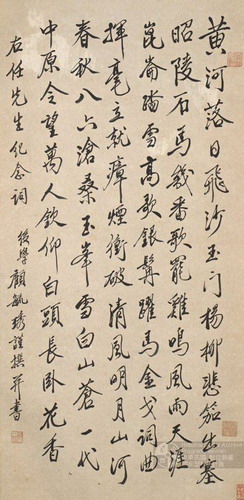 黄河落日飛沙玉门楊柳悲笳出塞
昭陵石馬幾番歌罷雞鳴風雨天涯
崑崙踏雪高歌銀髯躍馬金戈詞曲
揮毫立就瘴煙衝破清風明月山河
春秋八六滄桑玉峯雪白山蒼一代
中原令望萬人欽仰白頭長卧花香
右任先生紀念詞
後學顧毓琇謹撰并書